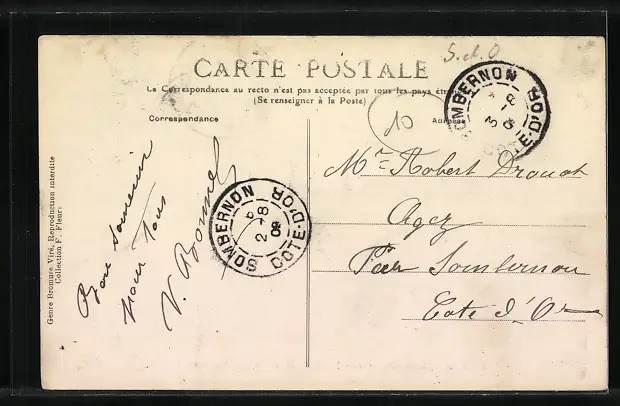 S. et. O
CARTE POSTALE
La Correspondance au recto n'est pas acceptée par tous les pays
(Se renseigner à la Poste)
Correspondance
Adresse
10
SOMBERNON
CÔTE-D'OR
Mr Robert Drouot
Agey
Par Sombernon
Cote d'Or
Bon souvenir
pour tous
V.
SOMBERNON
2-8
08
COTE-D'OR
Genre Bromure Viré, Reproduction interdite
Collection F. Fleur